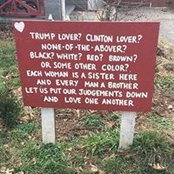 TRUMP LOVER? CLINTON LOVER?
NONE-OF-THE-ABOVER?
BLACK? WHITE? RED? BROWN?
OR SOME OTHER COLOR?
EACH WOMAN IS A SISTER HERE
AND EVERY MAN A BROTHER
LET US PUT OUR JUDGEMENTS DOWN
AND LOVE ONE ANOTHER